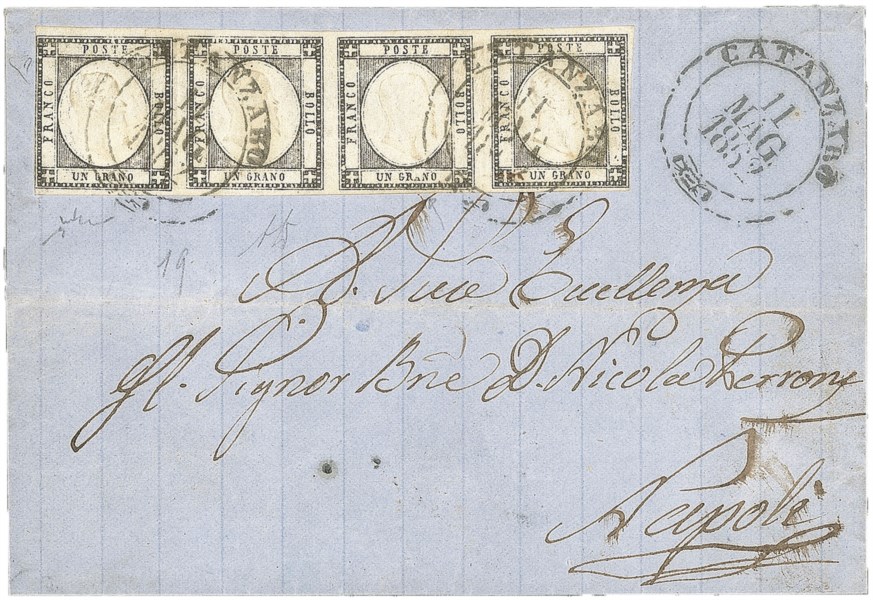 POSTE POSTE POSTE POSTE
FRANCO BOLLO FRANCO BOLLO FRANCO BOLLO FRANCO BOLLO
UN GRANO UN GRANO UN GRANO UN GRANO
CATANZARO
CATANZARO
CATANZARO
11
MAG
1862
19
A. Sua Eccellenza
Il Signor Bne D. Nicola Perrone
Napoli